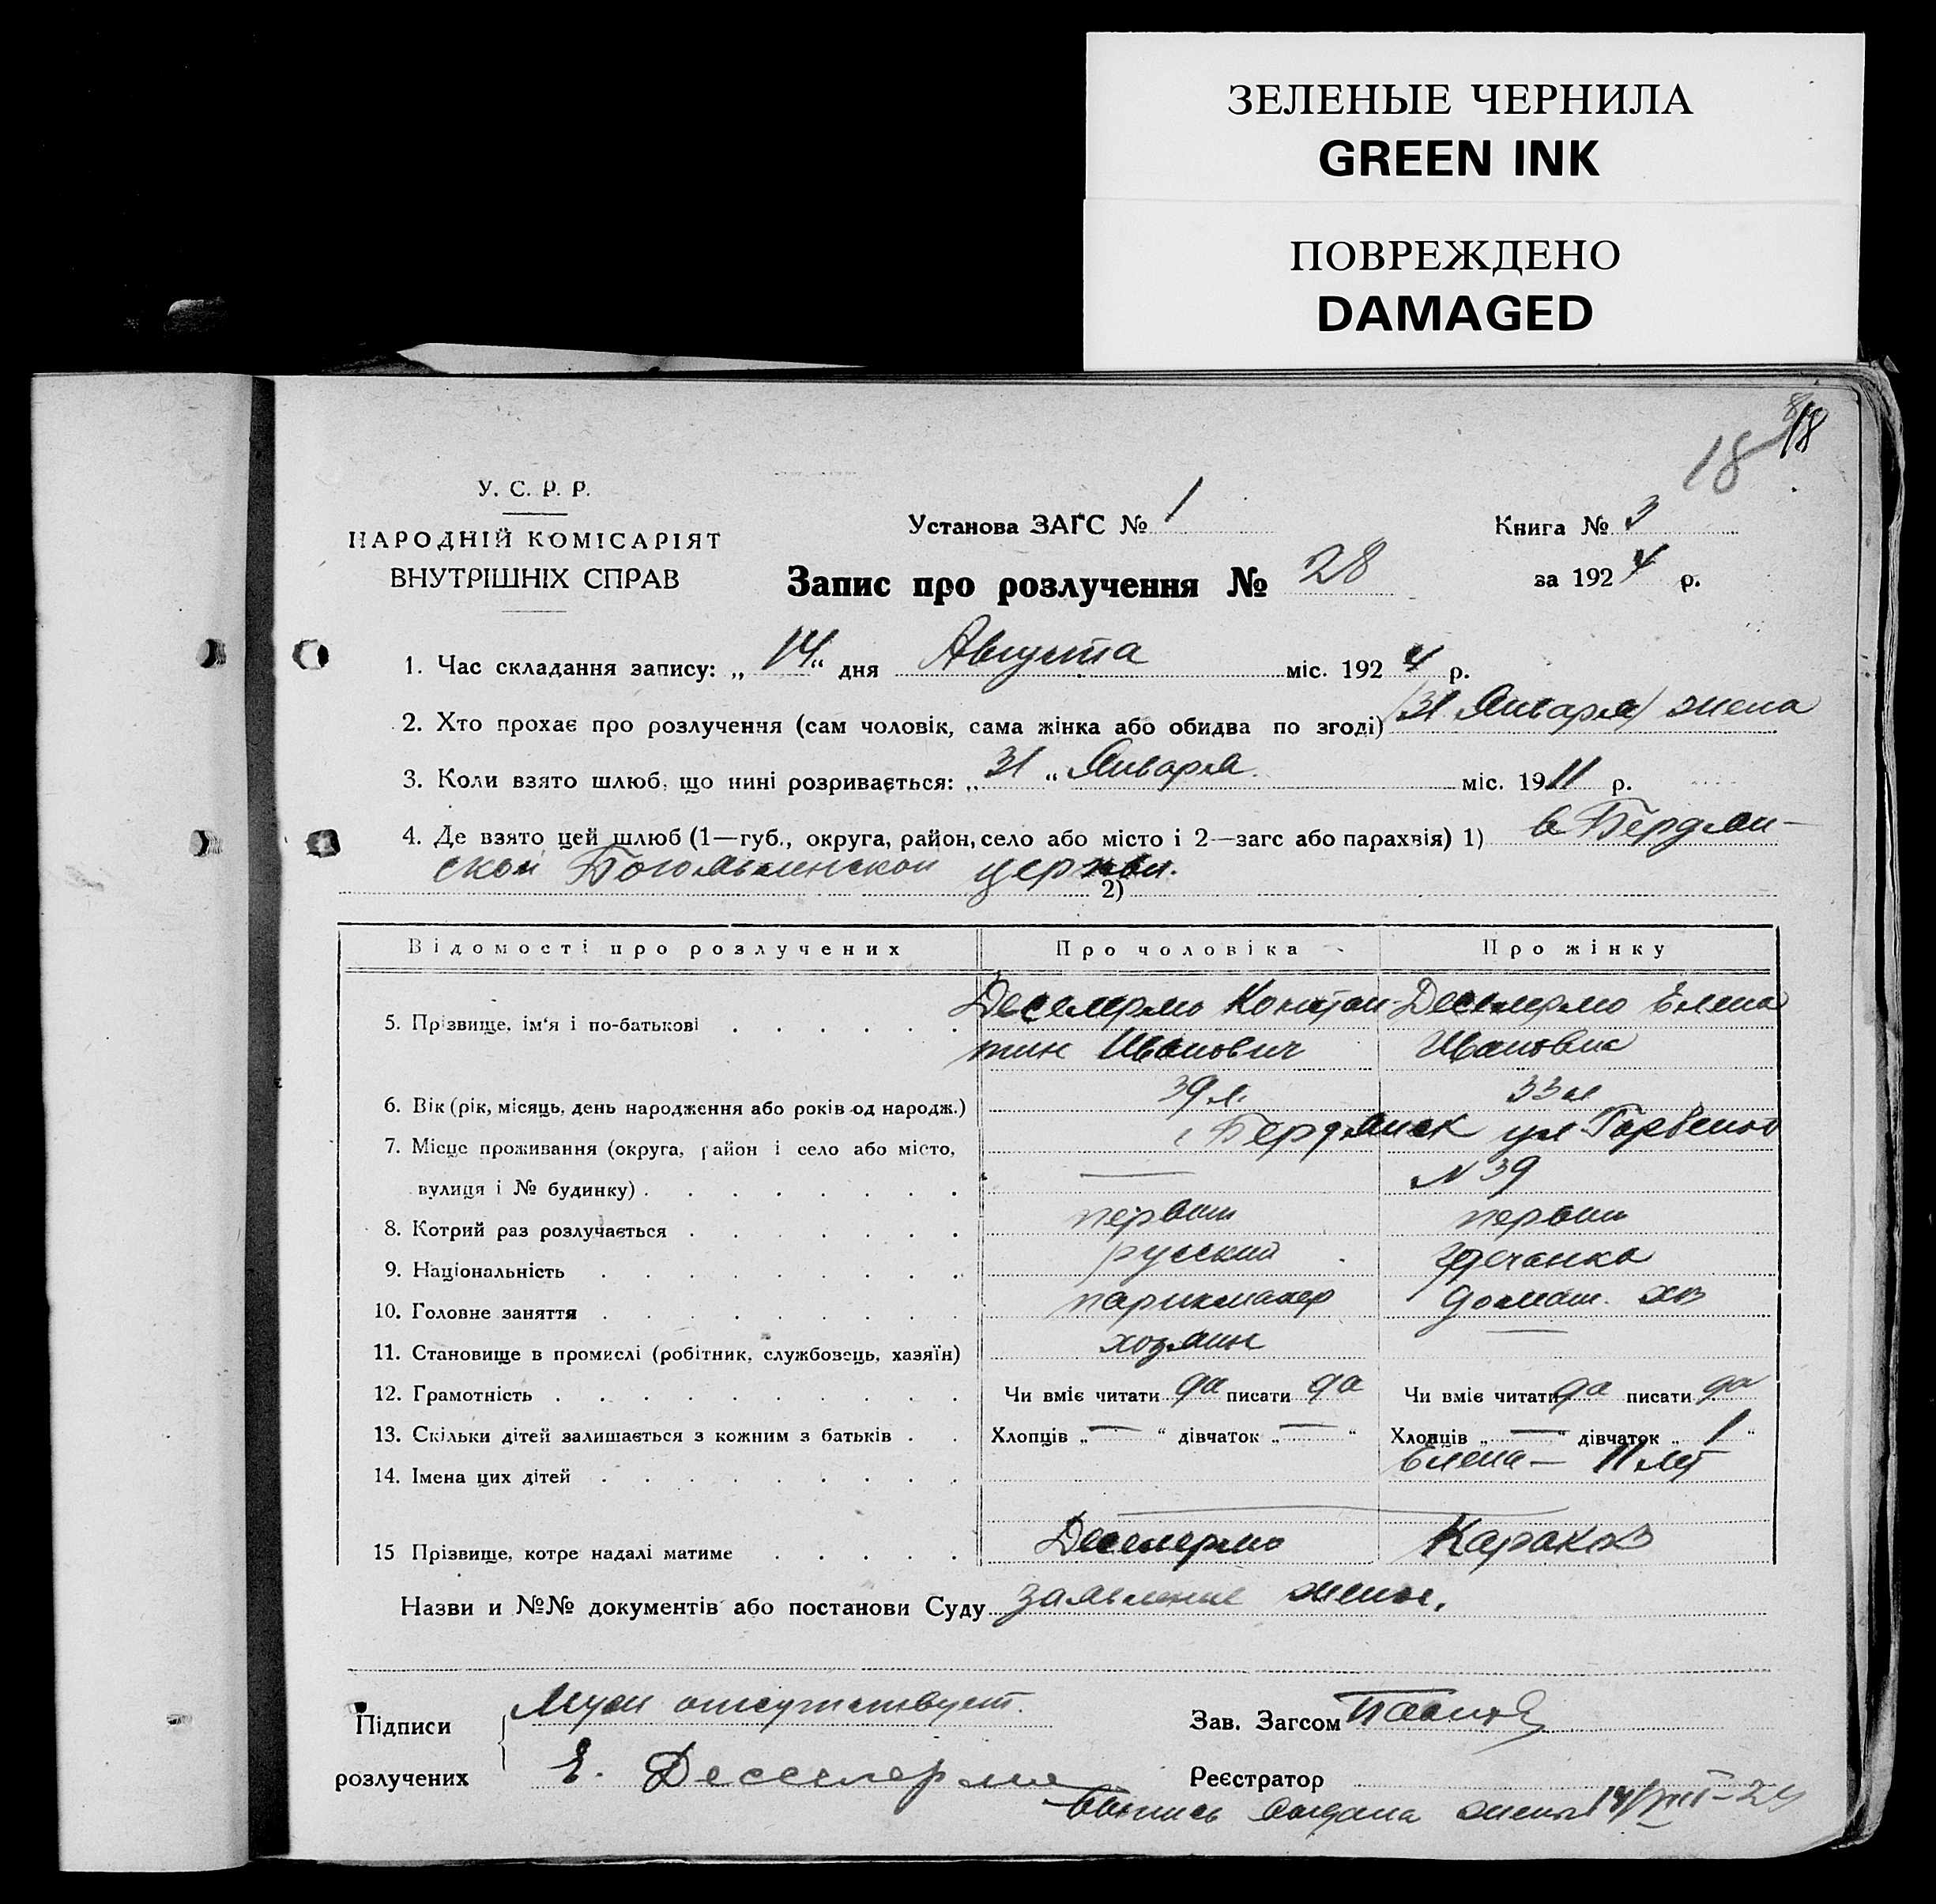 ЗЕЛЕНЫЕ ЧЕРНИЛА
GREEN INK
ПОВРЕЖДЕНО
DAMAGED
18
18
У. С. Р. Р.
НАРОДНІЙ КОМІСАРІЯТ
ВНУТРІШНІХ СПРАВ
Установа ЗАГС № 1
Книга № 3
за 1924 р.
Запис про розлучення № 28
1. Час складання запису: „14“ дня Августа міс. 1924 р.
2. Хто прохає про розлучення (сам чоловік, сама жінка або обидва по згоді) /31 Января/ жена
3. Коли взято шлюб, що нині розривається: „31“ Января міс. 1911 р.
4. Де взято цей шлюб (1—губ., округа, район, село або місто і 2—загс або парахвія) 1) в Бердян-
ской Богоявленской церкви. 2)
Відомості про розлучених Про чоловіка Про жінку
5. Прізвище, ім'я і по-батькові Констан- Елена
тин Иванович Ивановна
6. Вік (рік, місяць, день народження або років од народж.) 39 л. 33 л
7. Місце проживання (округа, район і село або місто, г Бердянск ул
вулиця і № будинку) — N 39
8. Котрий раз розлучається первый первый
9. Національність русский гречанка
10. Головне заняття парикмахер домаш. хоз
11. Становище в промислі (робітник, службовець, хазяїн) хозяин —
12. Грамотність Чи вміє читати да писати да Чи вміє читати да писати да
13. Скільки дітей залишається з кожним з батьків Хлопців „—“ дівчаток „—“ Хлопців „—“ дівчаток „1“
14. Імена цих дітей Елена — 11 лет
15 Прізвище, котре надалі матиме
Назви и №№ документів або постанови Суду заявление жены.
Підписи Муж отсутствует.
Зав. Загсом
розлучених Е.
Реєстратор
Выпись выдана жене 14/VIII-24